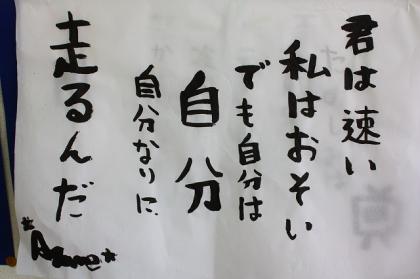 君は速い
私はおそい
でも自分は
自分
自分なりに
走るんだ